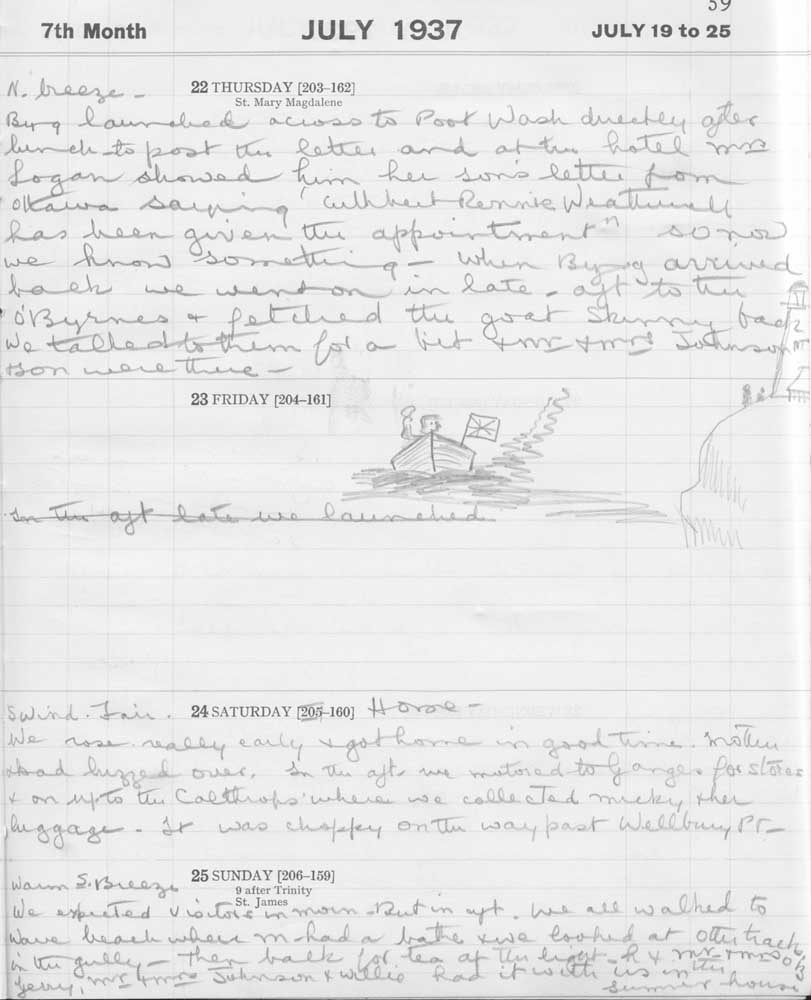 59
7th Month JULY 1937 JULY 19 to 25
N. breeze - 22 THURSDAY [203-162]
St. Mary Magdalene
Byrg launched across to Poot Wash directly after
lunch to post the letter and at the hotel Mrs
Logan showed him her son's letter from
Ottawa saying "Cuthbert Rennie Weatherell
has been given the appointment" so now
we know something - When Byrg arrived
back we went on in late - aft to the
O'Byrnes & fetched the goat Skinny back
We talked to them for a bit & Mr & Mrs Johnson
& son were there -
23 FRIDAY [204-161]
In the aft late we launched
S Wind. Fair. 24 SATURDAY [205-160] Home -
We rose really early & got home in good time. Mother
& Dad buzzed over. In the aft. we motored to Ganges for stores
& on up to the Calthrops' where we collected Micky & her
luggage. It was choppy on the way past Wellbury Pt -
Warm S. Breeze 25 SUNDAY [206-159]
9 after Trinity
St. James
We expected visitors in morn - But in aft. we all walked to
Wave beach where M- had a bathe & we looked at Otter tracks
in the gully - Then back for tea at the light - & Mr & Mrs O'B
Gerry, Mr & Mrs Johnson & Willie had it with us in the
summer house